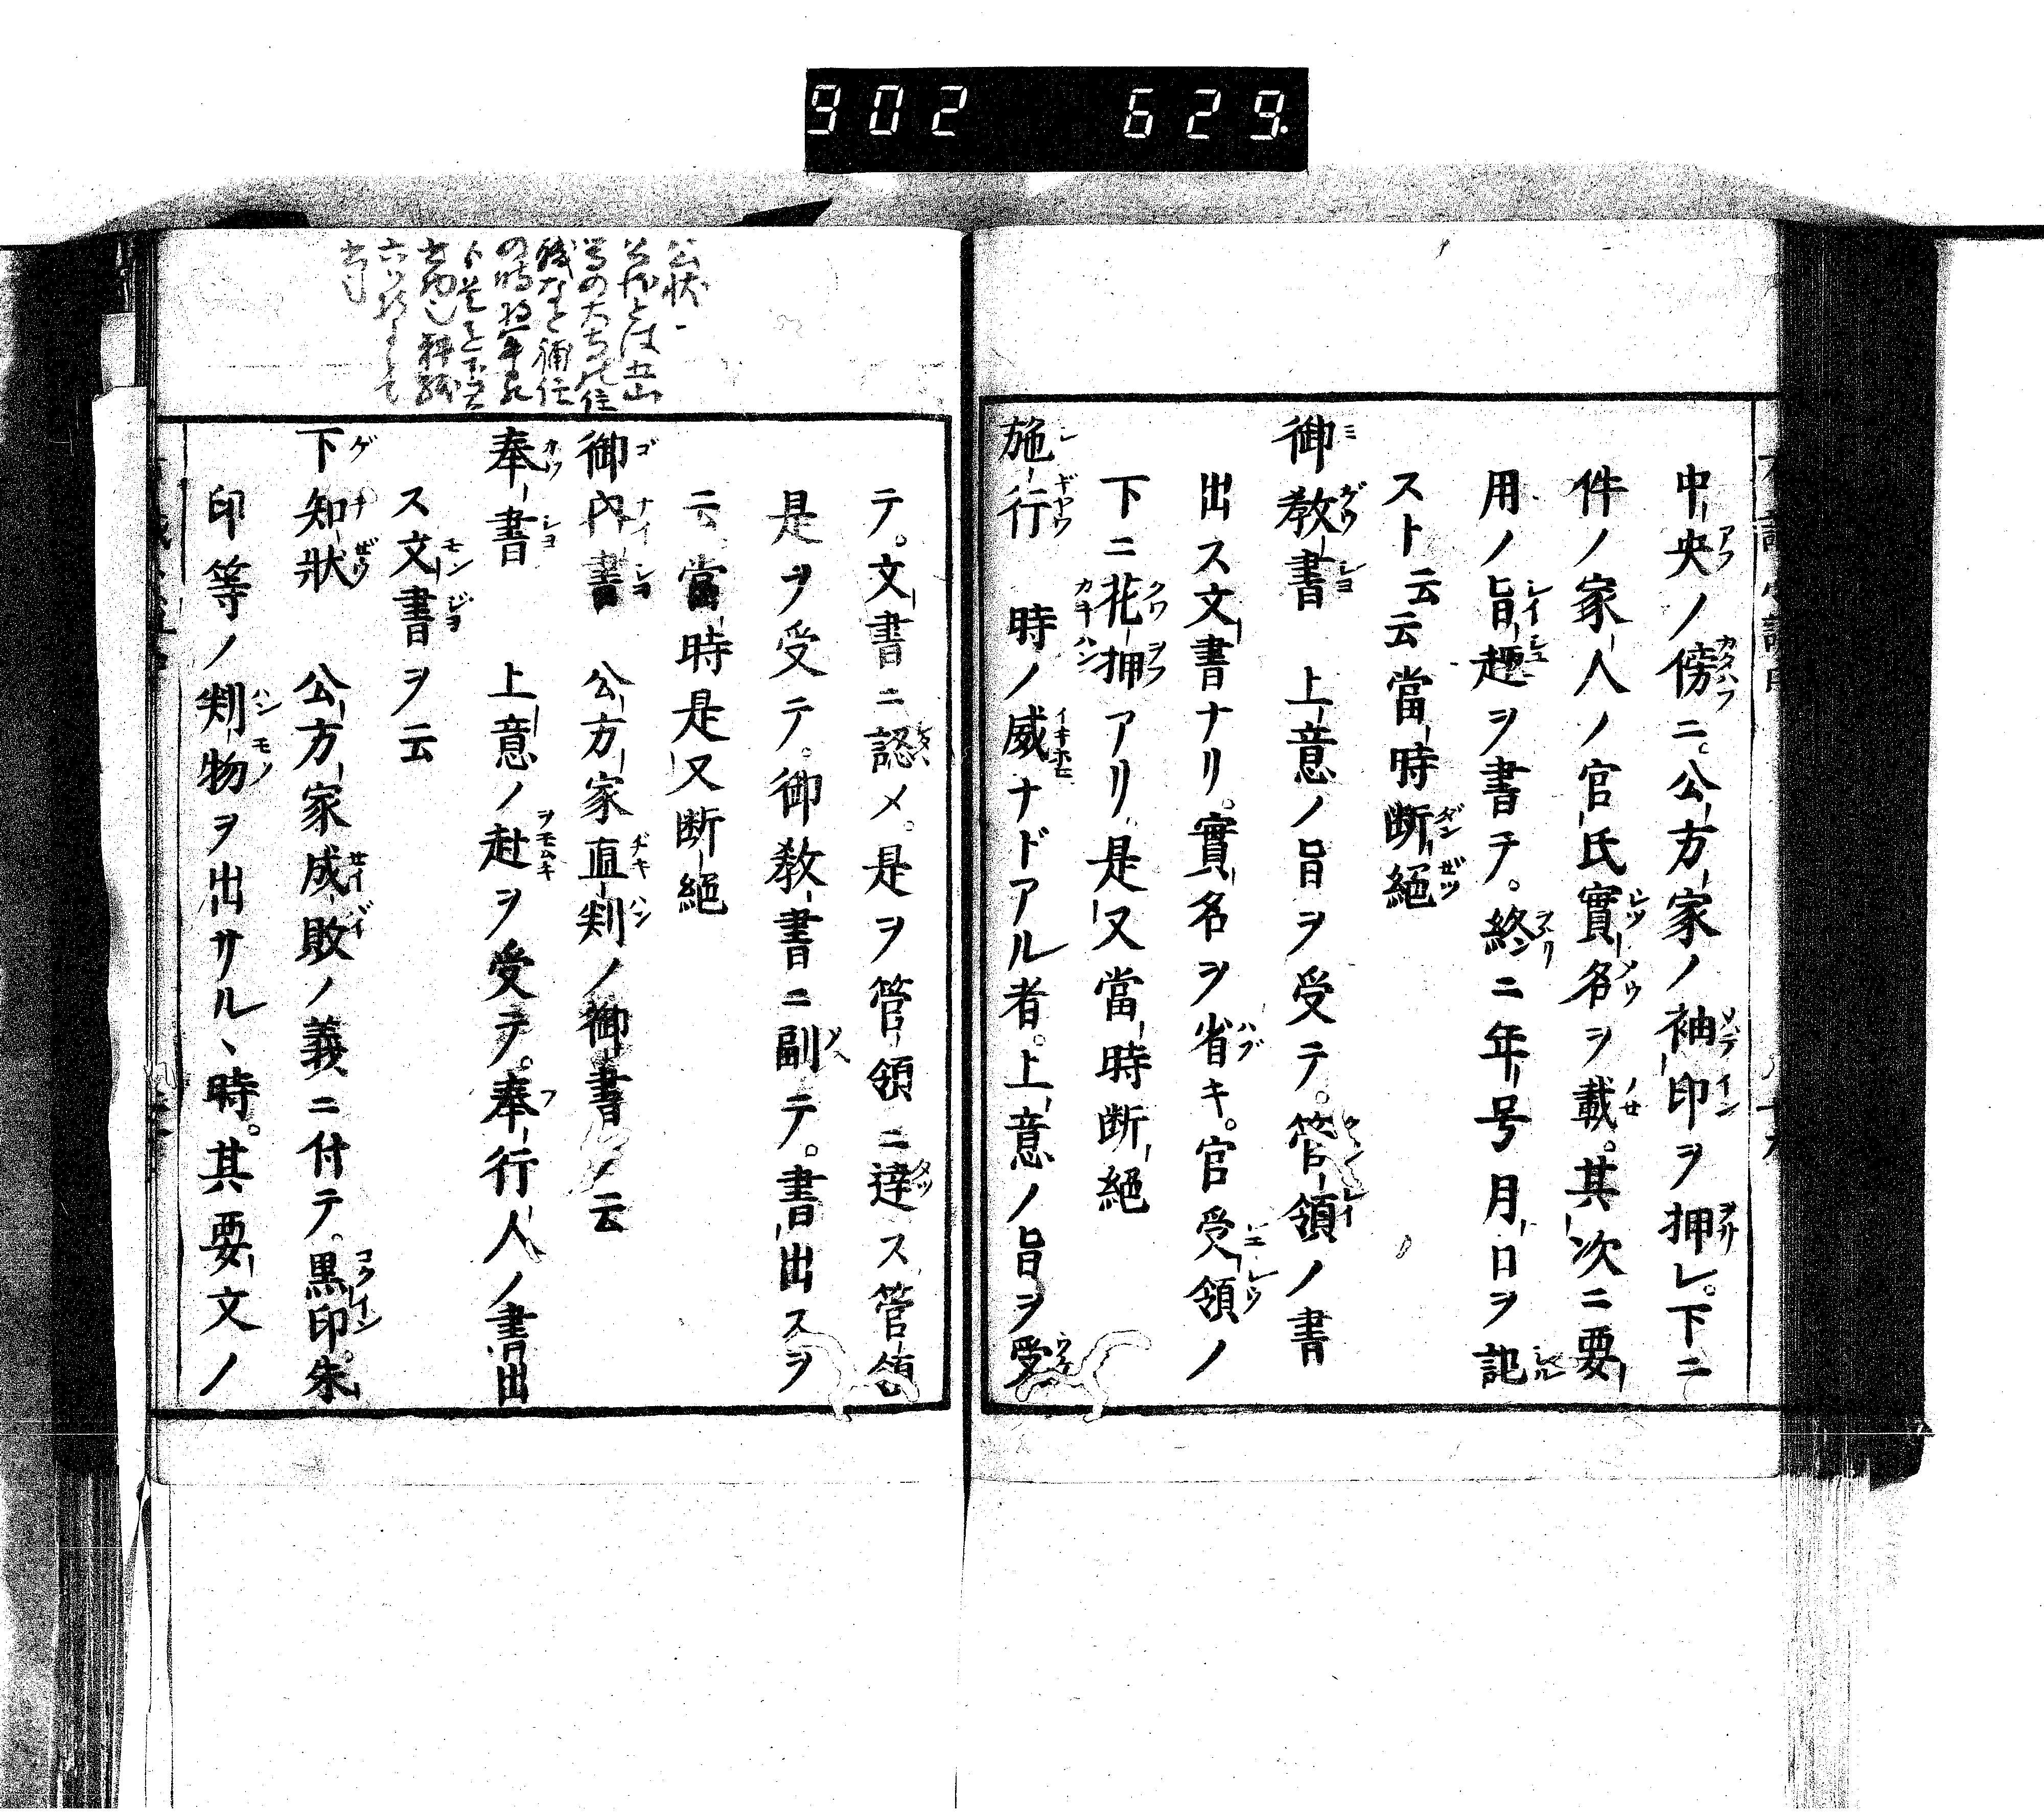 902 629
中央ノ傍ニ。公方家ノ袖印ヲ押シ。下ニ
件ノ家人ノ官氏實名ヲ載。其次ニ要
用ノ旨趣ヲ書テ。終ニ年号月日ヲ記
スト云云當時断絶
御教書 上意ノ旨ヲ受テ。管領ノ書
出ス文書ナリ。實名ヲ省キ。官受領ノ
下ニ花押アリ。是又當時断絶
施行 時ノ威ナドアル者。上意ノ旨ヲ受
テ。文書ニ認メ。是ヲ管領ニ達ス管領
是ヲ受テ。御教書ニ副テ。書出スヲ
云當時是又断絶
御内書 公方家直判ノ御書ヲ云
奉書 上意ノ赴ヲ受テ。奉行人ノ書出
ス文書ヲ云
下知狀 公方家成敗ノ義ニ付テ。黒印。朱
印等ノ判物ヲ出サルヽ時。其要文ノ
公状
公状とは五山
等の大寺の住
職などを補任
の時